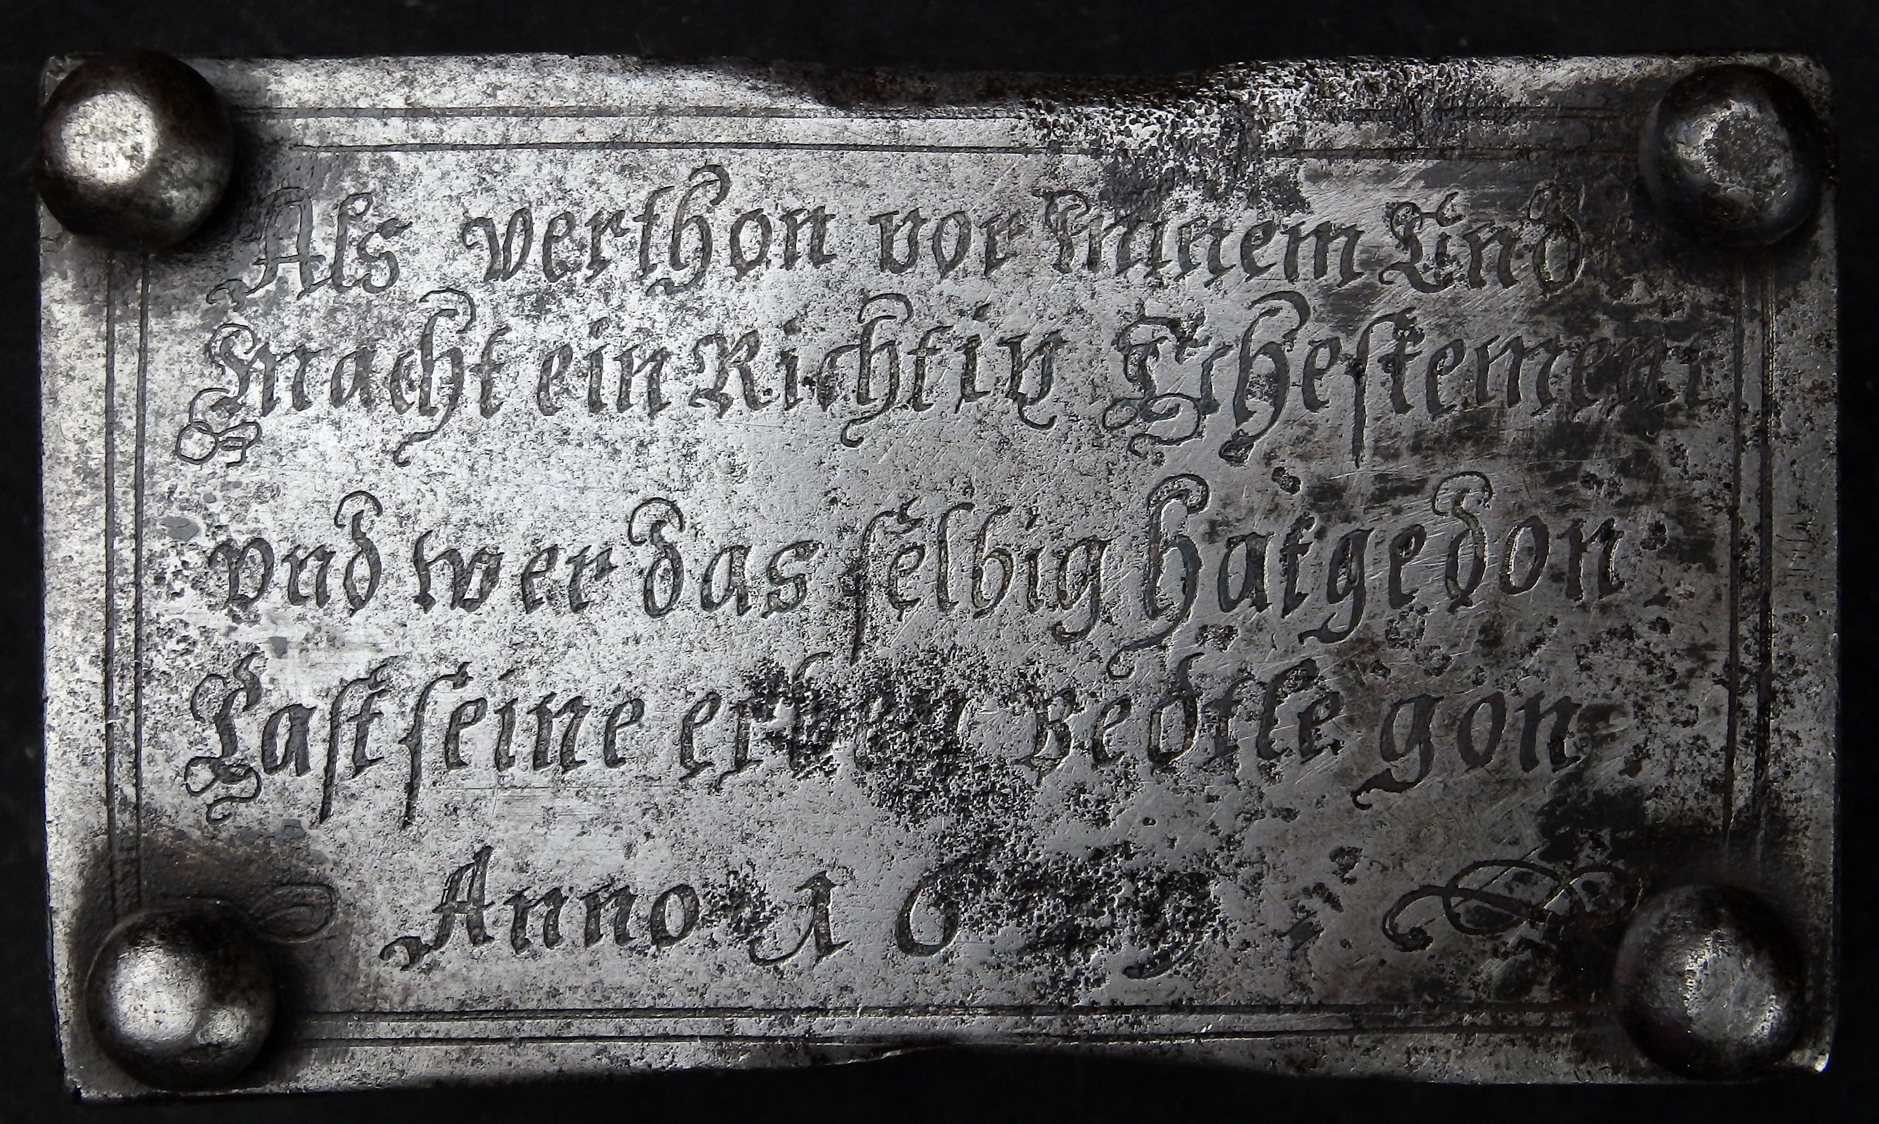 Als verthon vor meinem End
Macht ein Richtiv Thestement
vnd wer das selbig hat gedon
Last seine erben gon
Anno